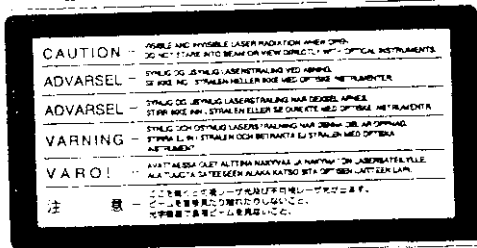 CAUTION - VISIBLE AND INVISIBLE LASER RADIATION WHEN OPEN.
DO NOT STARE INTO BEAM OR VIEW DIRECTLY WITH OPTICAL INSTRUMENTS.
ADVARSEL - SYNLIG OG USYNLIG LASERSTRÅLING VED ÅBNING.
SE IKKE IND I STRÅLEN HELLER IKKE MED OPTISKE INSTRUMENTER.
ADVARSEL - SYNLIG OG USYNLIG LASERSTRÅLING NÅR DEKSEL ÅPNES.
STIRR IKKE INN I STRÅLEN ELLER SE DIREKTE MED OPTISKE INSTRUMENTER.
VARNING - SYNLIG OCH OSYNLIG LASERSTRÅLNING NÄR DENNA DEL ÄR ÖPPNAD.
STIRRA EJ IN I STRÅLEN OCH BETRAKTA EJ STRÅLEN MED OPTISKA
INSTRUMENT.
VARO! - AVATTAESSA OLET ALTTIINA NÄKYVÄÄ JA NÄKYMÄTÖN LASERSÄTEILYLLE.
ÄLÄ TUIJOTA SÄTEESEEN ÄLÄKÄ KATSO SITÄ OPTISEN LAITTEEN LÄPI.
注 意 - ここを開くと可視レーザ光及び不可視レーザ光が出ます。
ビームを直接見たり触れたりしないこと。
光学機器で直接ビームを見ないこと。